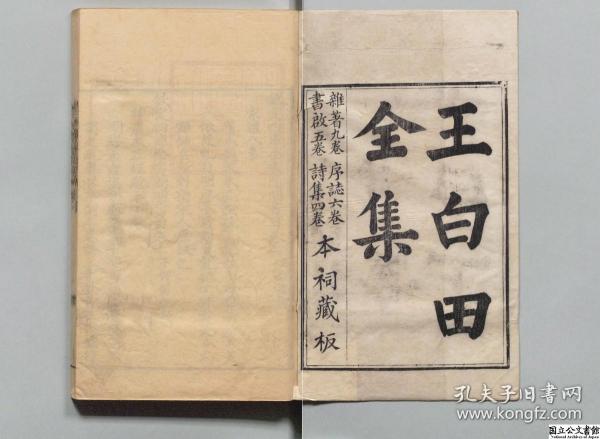 王白田
全集
雜著九卷 序誌六卷
書啟五卷 詩集四卷
本祠藏板
孔夫子旧书网
www.kongfz.com
国立公文書館
National Archives of Japan